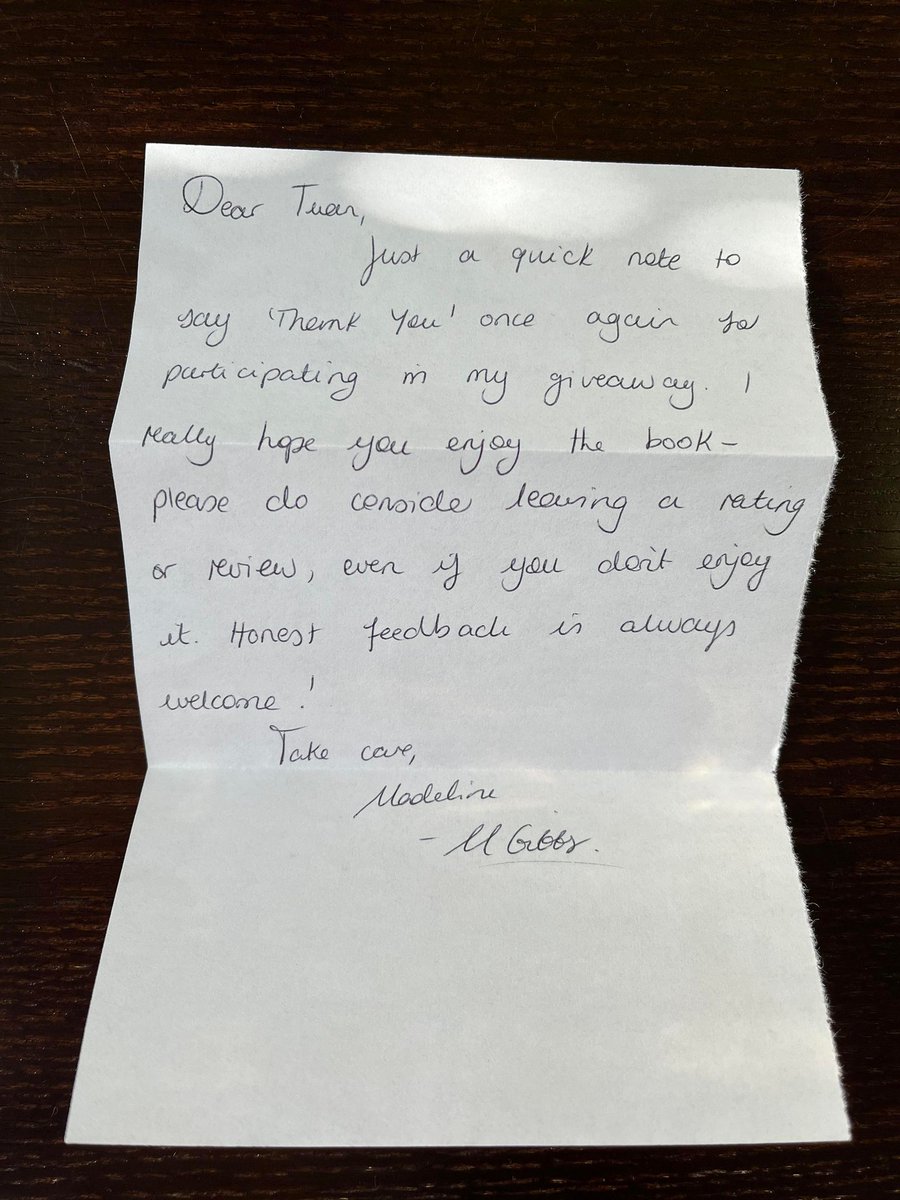 Dear Tuan,
Just a quick note to
say 'Thank You' once again for
participating in my giveaway. I
really hope you enjoy the book-
please do consider leaving a rating
or review, even if you don't enjoy
it. Honest feedback is always
welcome!
Take care,
Madeline
- M Gibbs.